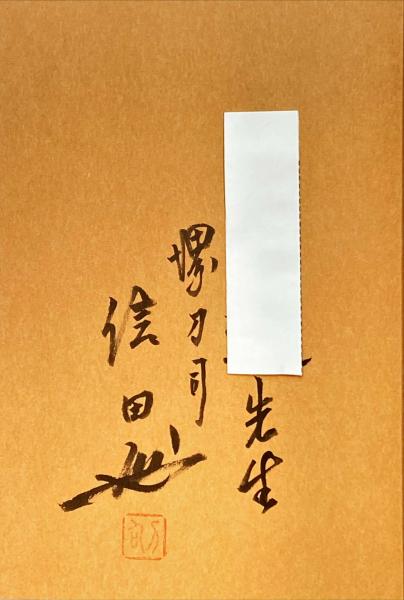 先生
堺刀司
信田